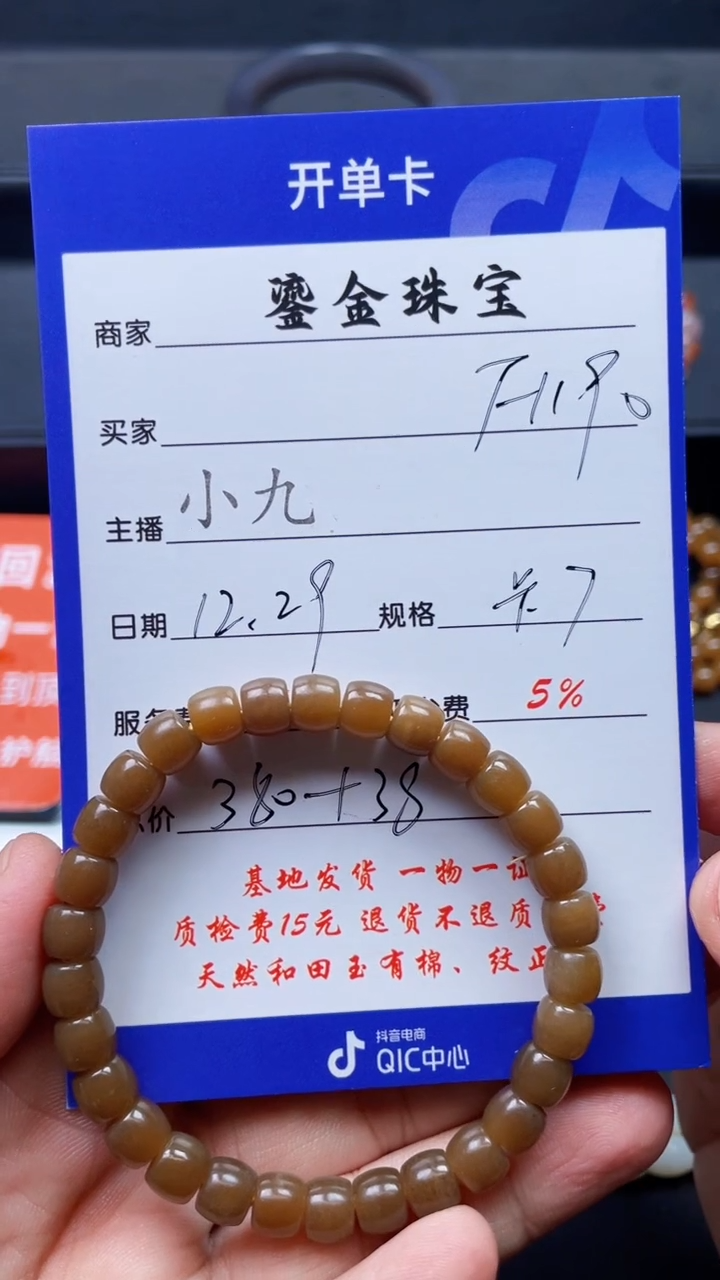 开单卡
商家 鎏金珠宝
买家
主播 小九
日期 12.29 规格
服务费 费 5%
价 380+38
基地发货 一物一证
质检费15元 退货不退质
天然和田玉有棉、纹正
抖音电商
QIC中心
到顶
护航